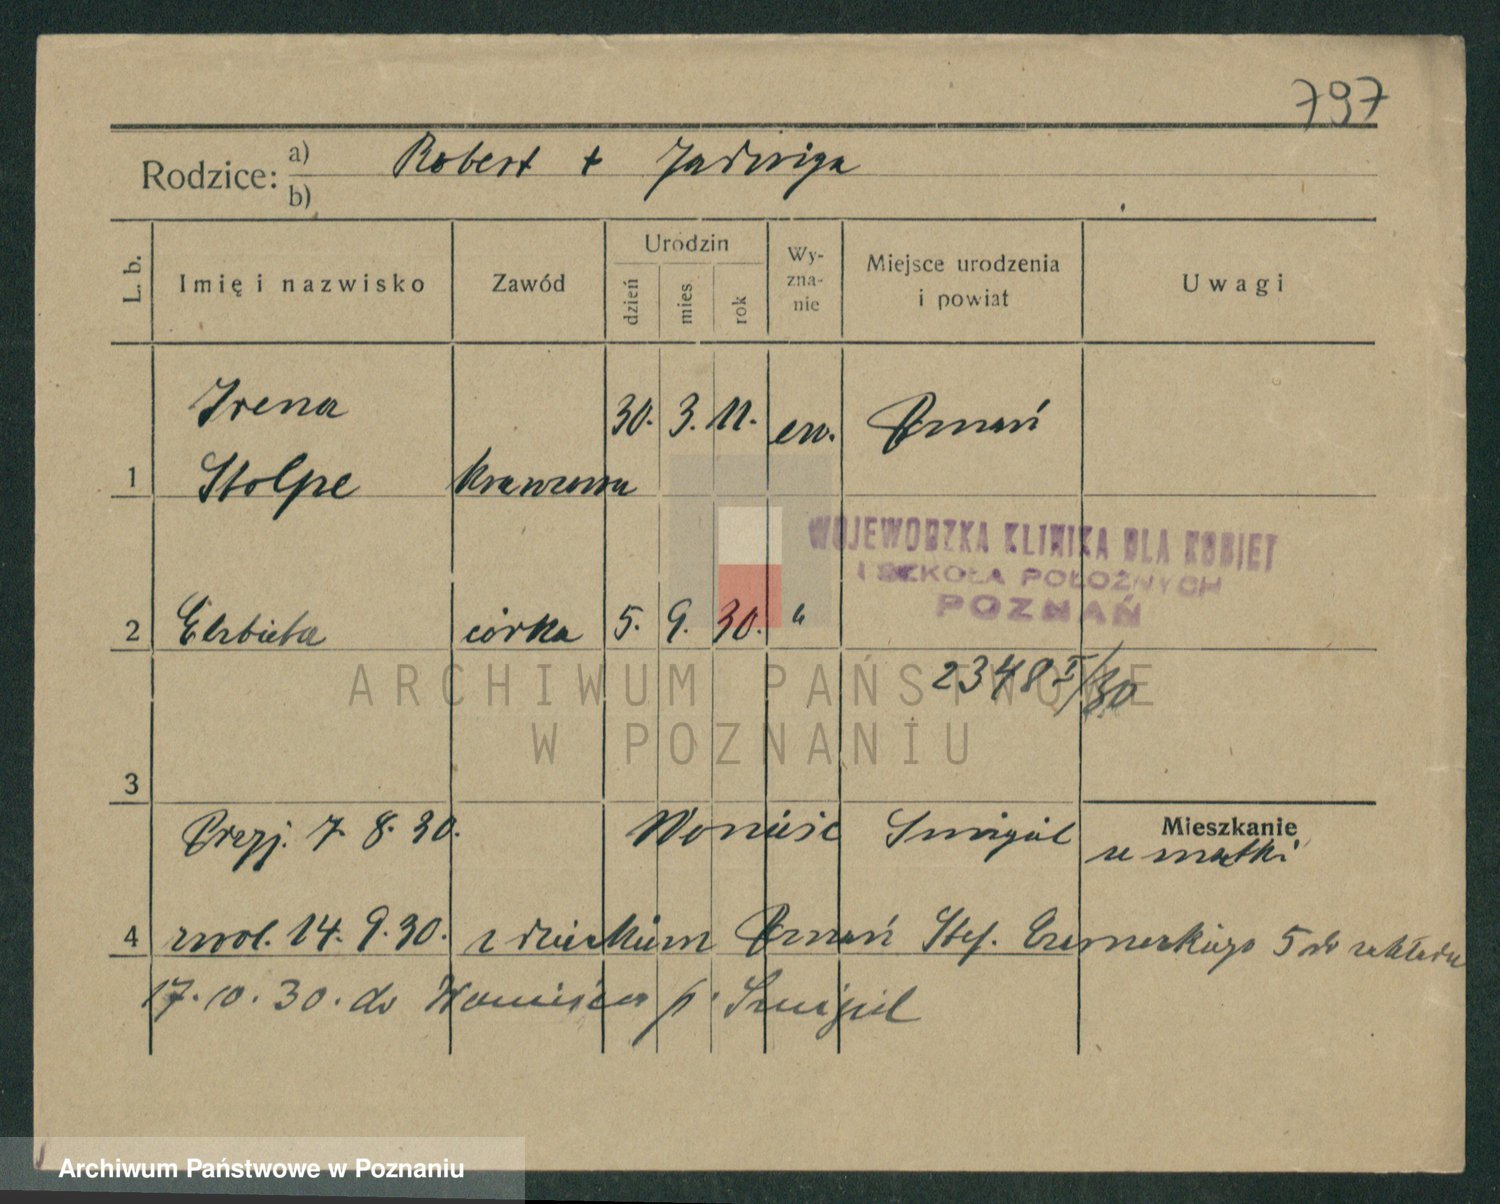 797
Rodzice: a) Robert + Jadwiga
b)
L. b.
Imię i nazwisko
Zawód
Urodzin
dzień
mies
rok
Wy-
zna-
nie
Miejsce urodzenia
i powiat
Uwagi
Irena 30. 3. 11. ew. Poznań
1 Stolpe krawcowa
WOJEWODZKA KLINIKA DLA KOBIET
I SZKOŁA POŁOŻNYCH
POZNAŃ
2 Elzbieta córka 5. 9. 30. "
2348 I/30
ARCHIWUM PAŃSTWOWE
W POZNANIU
3
Mieszkanie
Przyj. 7. 8. 30. Wonieść Śmigiel u matki
4 zwol. 14. 9. 30. z dzieckiem Poznań Stef. Czarneckiego 5 do zakładu
17. 10. 30. do Wonieścia p. Śmigiel
Archiwum Państwowe w Poznaniu